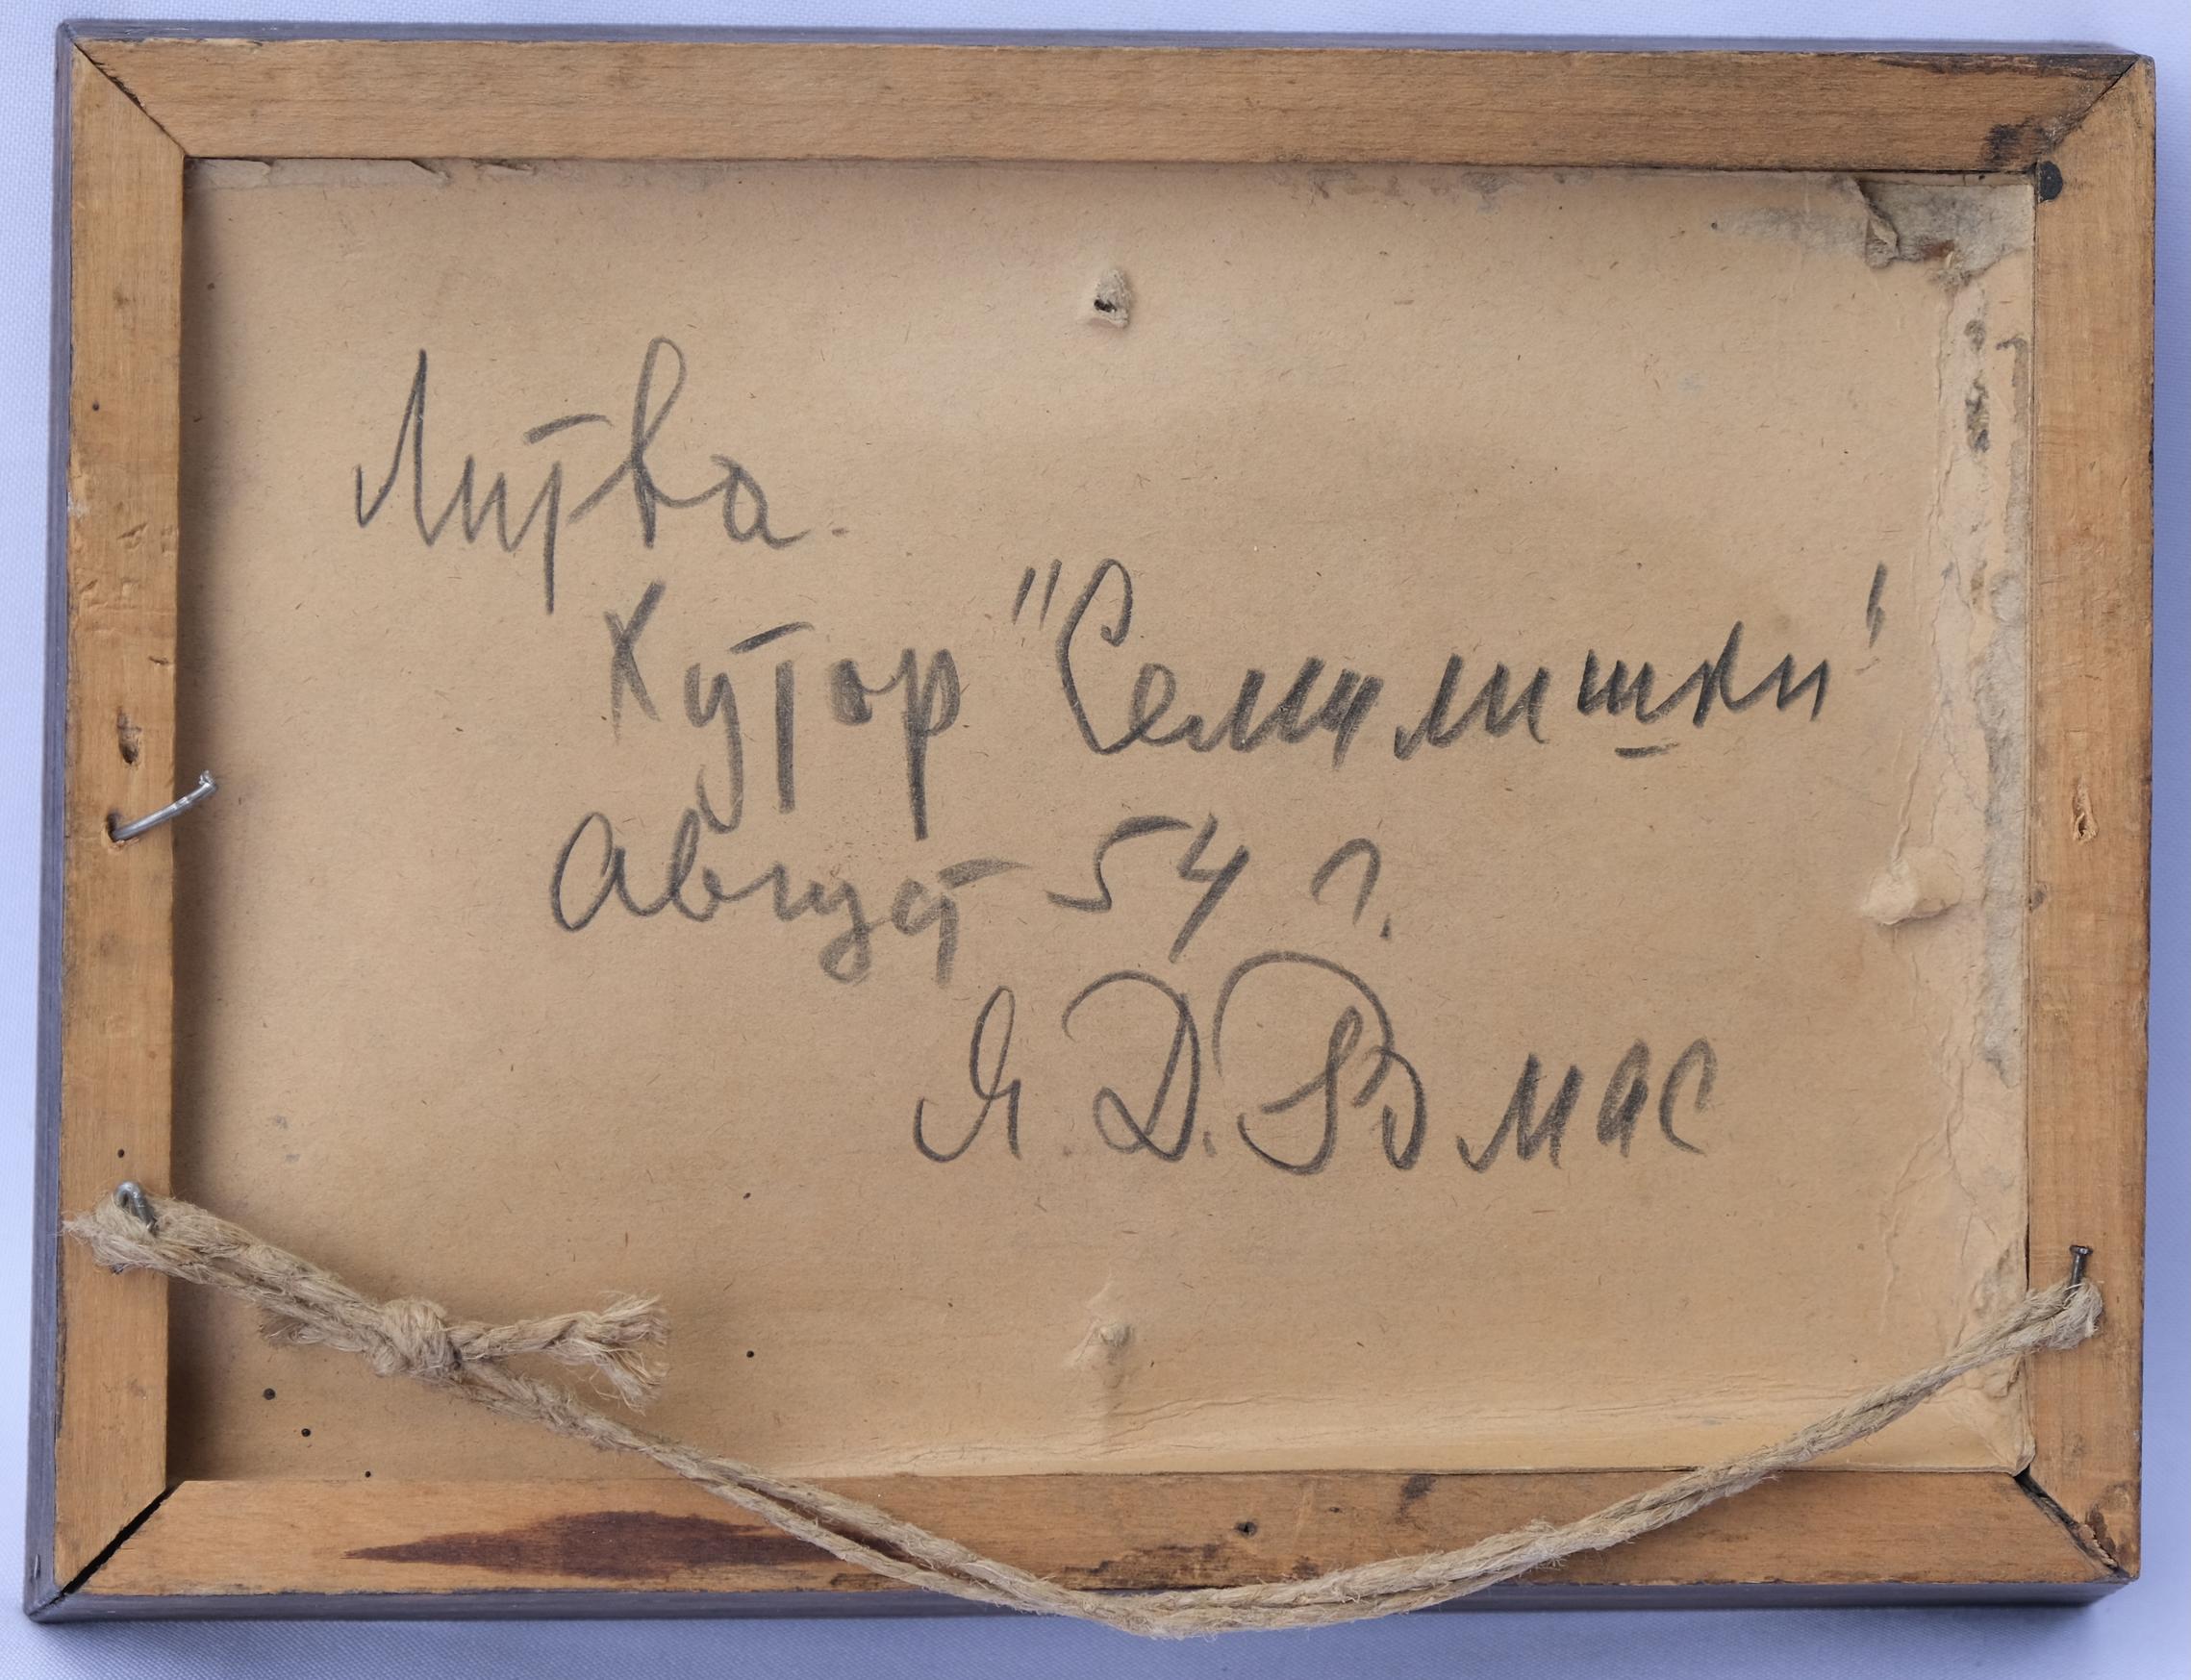 Литва.
Хутор "Семилишки"
Август 54 г.
Я. Д. Ромас